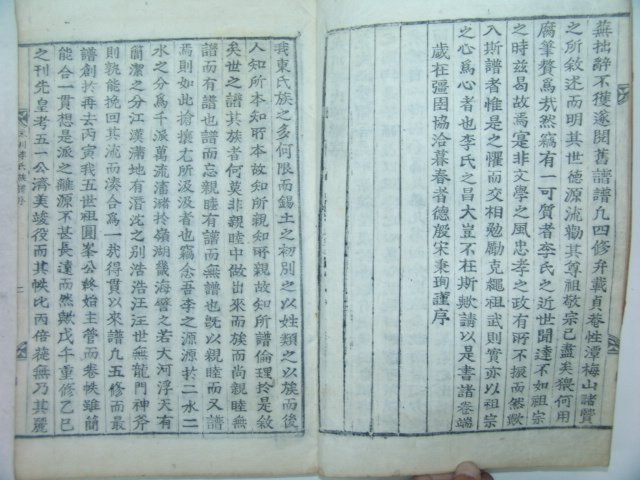 蕪拙辭不獲遂閱舊譜譜凡四修弁載貞菴性潭梅山諸賢
之所敘述而明其世德源流勖其尊祖敬宗已盡矣猥何用
腐筆贅爲哉然竊有一可質者李氏之近世聞達不如祖宗
之時玆曷故焉寔非文學之風忠孝之政有所不振而然歟
入斯譜者惟是之懼而交相勉勵克繩祖武則實亦以祖宗
之心爲心者也李氏之昌大豈不在斯歟請以是書諸卷端
歲在彊圉協洽暮春者德殷宋秉珣謹序
我東氏族之多何限而錫土之初別之以姓類之以族而後
人知所本知所本故知所親知所親故知所譜倫理於是敘
矣世之譜其族者何莫非親睦中做出來而族而尚親睦無
譜而有譜也譜而忘親睦有譜而無譜也旣以親睦而又譜
焉則如此搶攘尤所汲汲者也竊念吾李之源源於二水二
水之分爲千派萬流瀦於嶺湖畿海譬之若大河浮天有
簡潔之分江漢滿地有潛沱之別浩浩汪汪世無龍門神斧
則孰能挽回其流而湊合爲一我得貫以來譜凡五修而最
譜創於再去丙寅我五世祖圓峯公終始主管而卷帙雖簡
能合一貫想是派之離源不甚長遠而然歟戊午重修乙巳
之刊先皇考五一公濟美竣役而其帙比丙倍徙無乃其麗
李氏族譜序